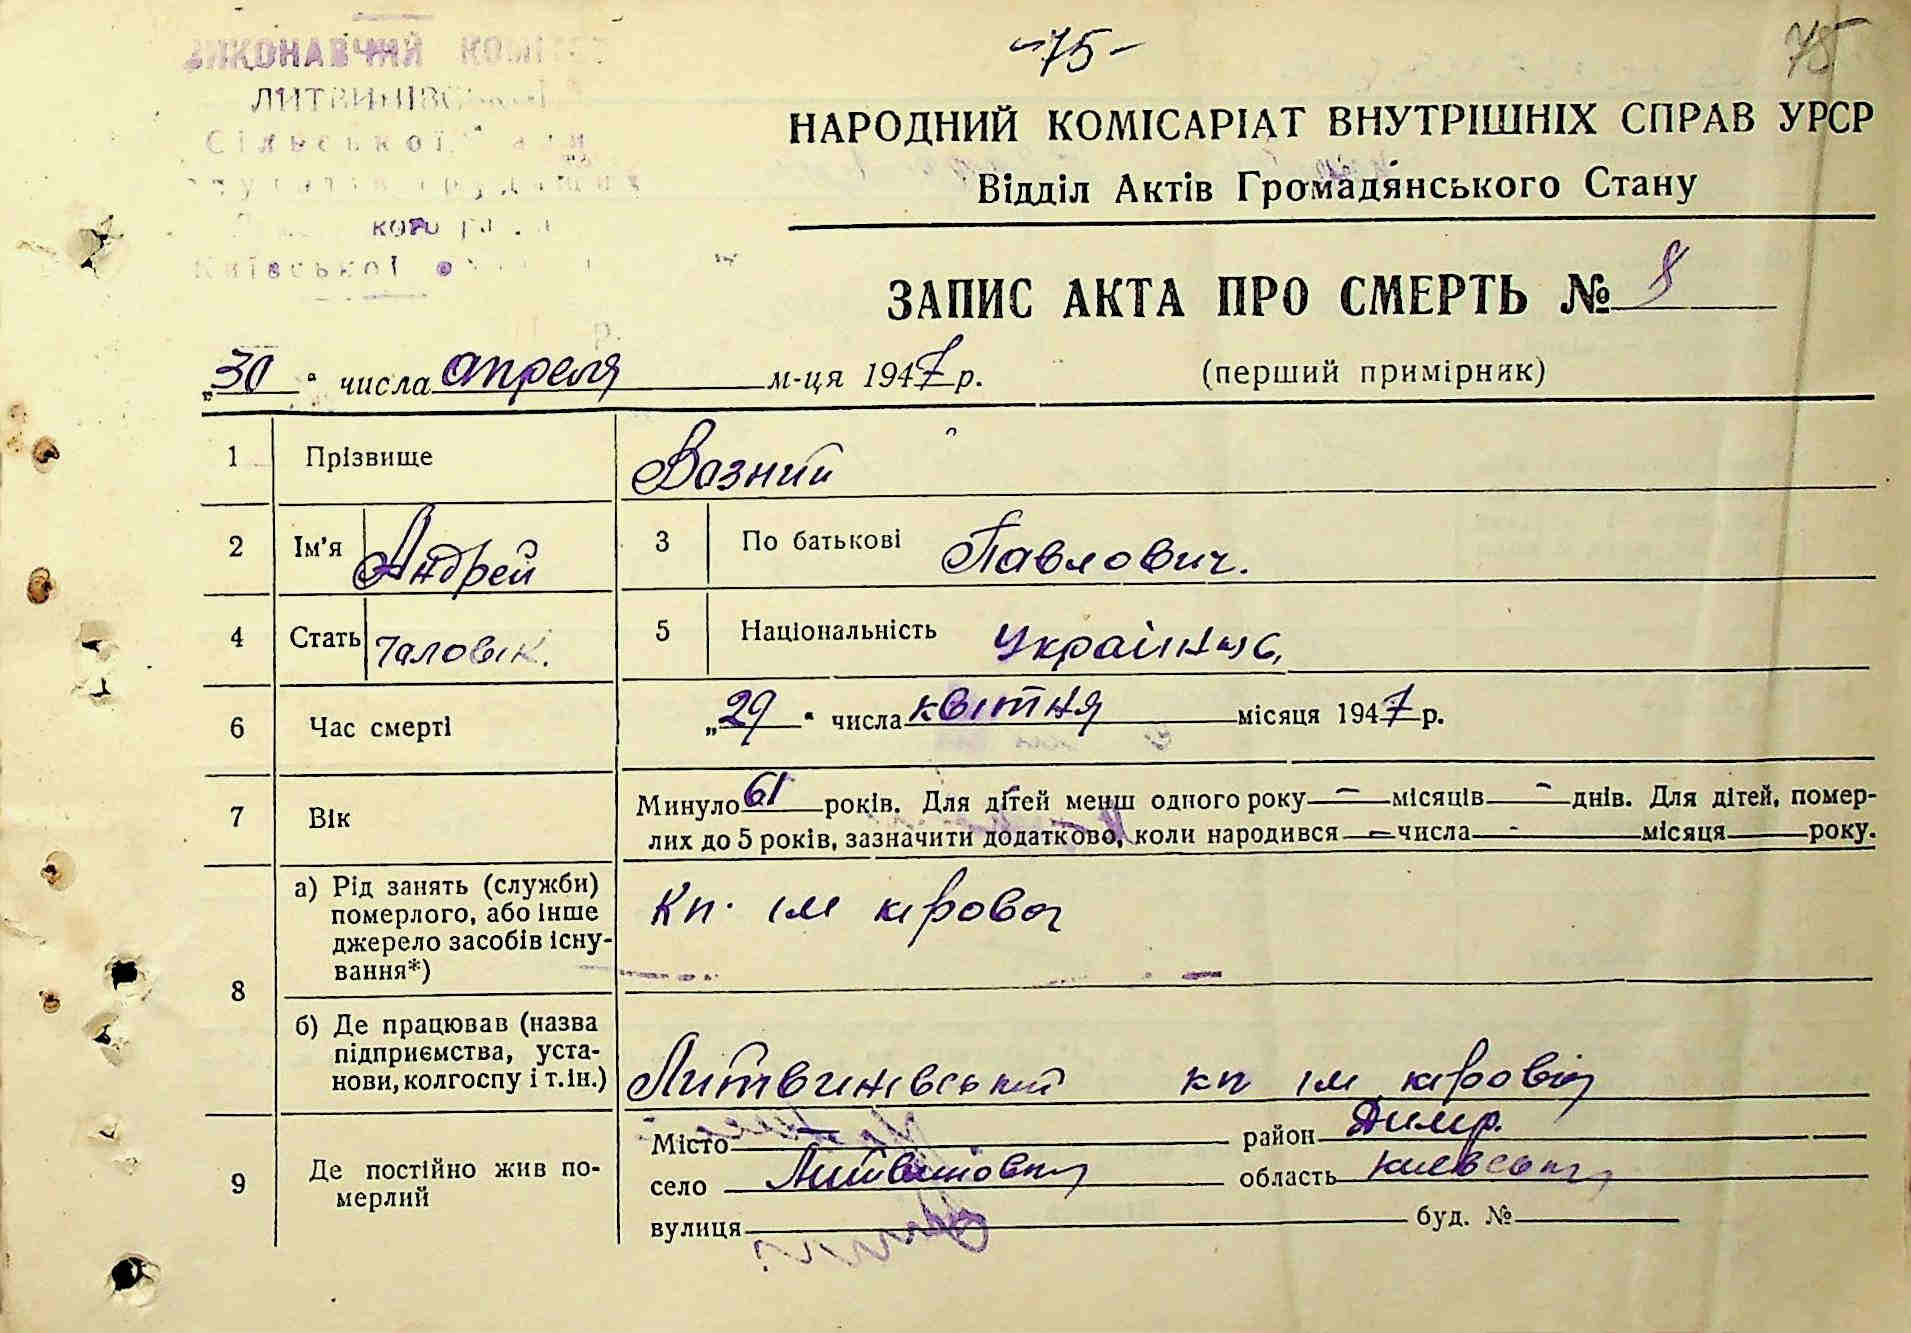 ВИКОНАВЧИЙ КОМІТЕТ
ЛИТВИНІВСЬКОЇ
Сільської Ради
кого
Київської
-75-
75
НАРОДНИЙ КОМІСАРІАТ ВНУТРІШНІХ СПРАВ УРСР
Відділ Актів Громадянського Стану
ЗАПИС АКТА ПРО СМЕРТЬ № 8
„30“ числа апреля м-ця 1947 р. (перший примірник)
1 Прізвище Возний
2 Ім'я Андрей 3 По батькові Павлович.
4 Стать чаловік. 5 Національність
6 Час смерті „29“ числа квітня місяця 1947 р.
7 Вік Минуло 61 років. Для дітей менш одного року — місяців — днів. Для дітей, помер-
лих до 5 років, зазначити додатково, коли народився — числа - місяця року.
8 а) Рід занять (служби)
померлого, або інше
джерело засобів існу-
вання*)
Кп. ім кірова
б) Де працював (назва
підприємства, уста-
нови, колгоспу і т. ін.)
Литвинівський кп ім кірова
9 Де постійно жив по-
мерлий
Місто — район Димр.
село Литвиновка область Киевська
вулиця буд. №